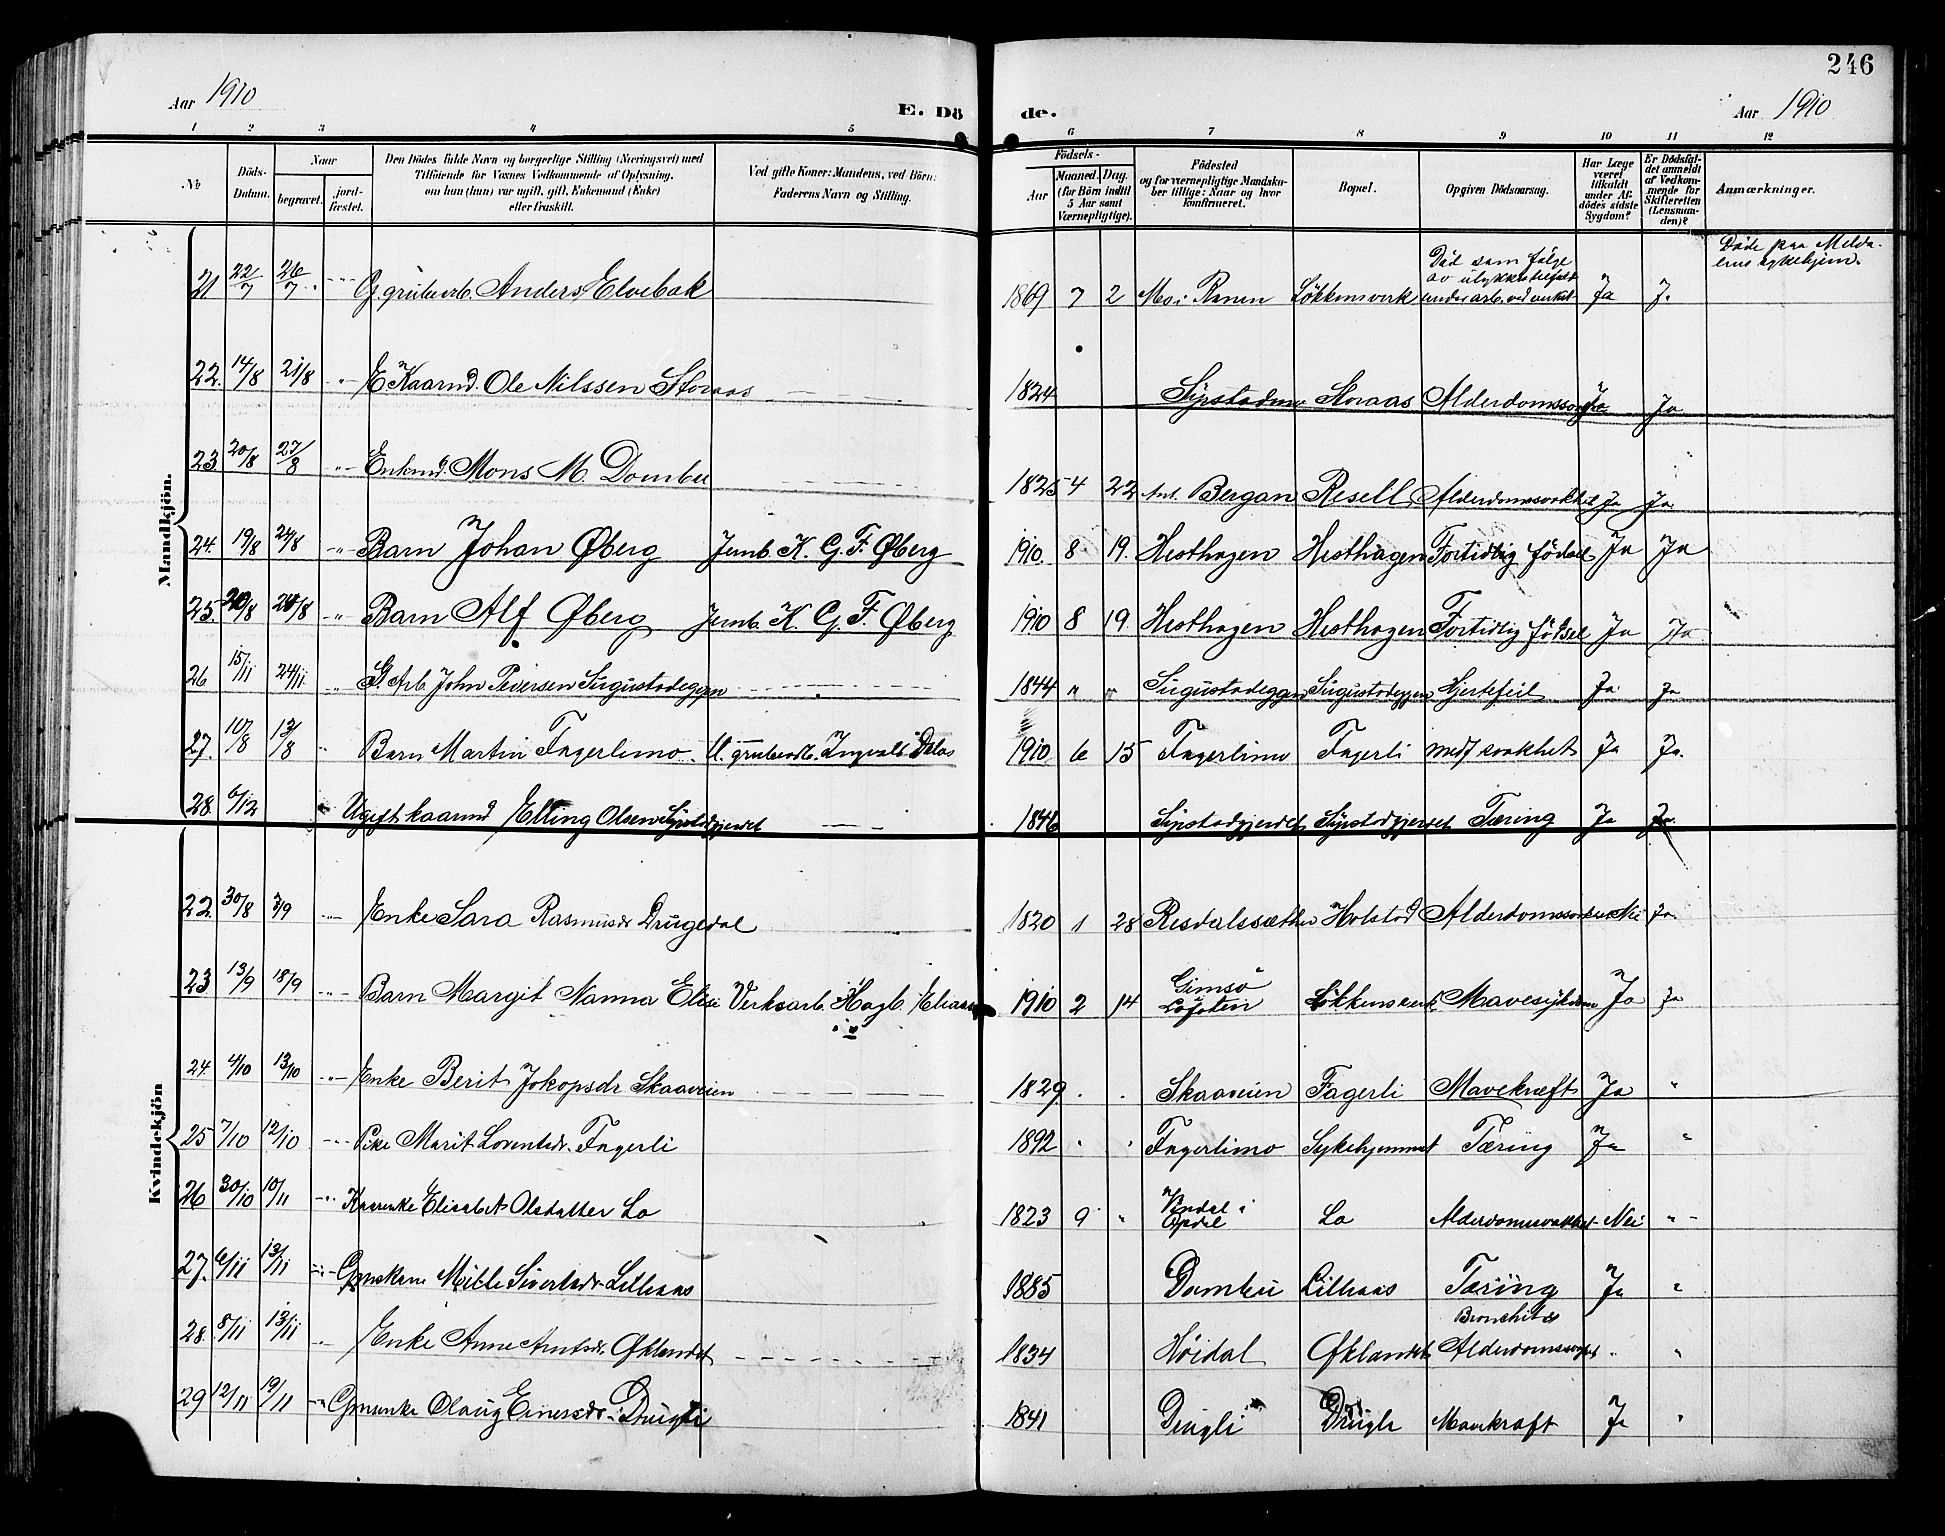 246
Aar 1910
E. Dö de.
Aar 1910
1 2 3 4 5 6 7 8 9 10 11 12
No
Döds-Datum.
Naar
begravet.
jord-fæstet.
Den Dödes fulde Navn og borgerlige Stilling (Næringsvei) med
Tilföiende for Voxnes Vedkommende af Oplysning,
om han (hun) var ugift, gift, Enkemand (Enke)
eller fraskilt.
Ved gifte Koner: Mandens, ved Börn:
Faderens Navn og Stilling.
Födsels-
Aar
Maaned. Dag.
(for Börn indtil
5 Aar samt
Værnepligtige).
Födested
og for værnepligtige Mandska-
ber tillige: Naar og hvor
konfirmeret.
Bopæl.
Opgiven Dödsaarsag.
Har Læge
været
tilkaldt
under Af-
dödes sidste
Sygdom?
Er Dödsfal-
det anmeldt
af Vedkom-
mende for
Skifteretten
(Lensman-
den)?
Anmærkninger.
Mandkjön.
21 22/7 26/7 G. grubearb. Anders Elvebak 1869 7 2 Mo i Ranen Løkkensverk Død som følge av ulykkestilfeld under arb. ved verket Ja J. Døde paa Melda- lens sykehjem.
22. 14/8 21/8 E. Kaarmd. Ole Nilssen Storaas 1824 Syrstadmo Storaas Ja Ja
23 20/8 27/8 Enkmd. Mons M. Dombu 1825 4 22 Ant. Bergan Resell Alderdomssvakhet Ja Ja
24. 19/8 24/8 Barn Johan Øberg Jernb. K. G. F. Øberg 1910. 8 19. Hesthagen Hesthagen Fortidlig fødsel Ja Ja
25. 20/8 24/8 Barn Alf Øberg Jernb. K. G. F. Øberg 1910 8 19 Hesthagen Hesthagen Fortidlig fødsel Ja Ja
26 15/11 24/11 G. Arb John Iversen Syrgustadeggen 1844 " " Syrgustadeggen Syrgustadeggen Hjertefeil Ja Ja
27. 10/8 13/8 Barn Martin Fagerlimo U. grubearb. Ingvald Dalas 1910 6 15 Fagerlimo Fagerli medf svakhet Ja Ja.
28. 6/12 Ugift kaarmd Elling Olsen Syrstadgjerdet 1846 Syrstadgjerdet Syrstadgjerdet Tæring Ja Ja.
Kvindekjön
22. 30/8 3/9 Enke Sara Rasmusdr Drugedal 1820 1 28 Resdalssætter Holstad Nei Ja.
23 13/9 18/9 Barn Margit Nanna Elise Verksarb. Hagb. Elias 1910 2 14 Gimsø Lofoten Løkkensverk Mavesykdom Ja Ja
24. 4/10 13/10 Enke Berit Jokopsdr Skaaveien 1829. Skaaveien Fagerli Mavekræft Ja "
25 7/10 12/10 Pike Marit Lorentsdr. Fagerli 1892 " " Fagerlimo Sykehjemmet Tæring Ja "
26 30/10 10/11 Kaarenke Elisabet Olsdatter Lo 1823 9 " Vindal i Opdal Lo Alderdomssvakhet Nei "
27. 6/11 13/11 Gmskone Mille Sivertsdr. Lillraas 1885 Dombu Lillraas Tæring Ja "
28. 8/11 13/11 Enke Anne Arntsdr. Øklandet 1834 Høidal Øklandet Bronchit & " "
29 12/11 19/11 Gmrenke Olaug Einersdr. Drugli 1841 Drugli Drugli Mavekræft Ja "